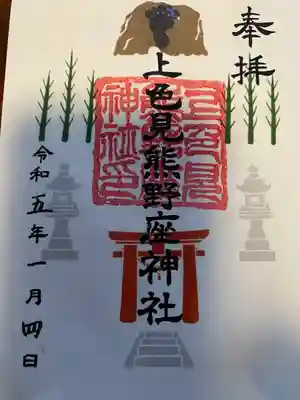 奉拝
上色見熊野座神社
令和五年一月四日
上色見熊野座神社印